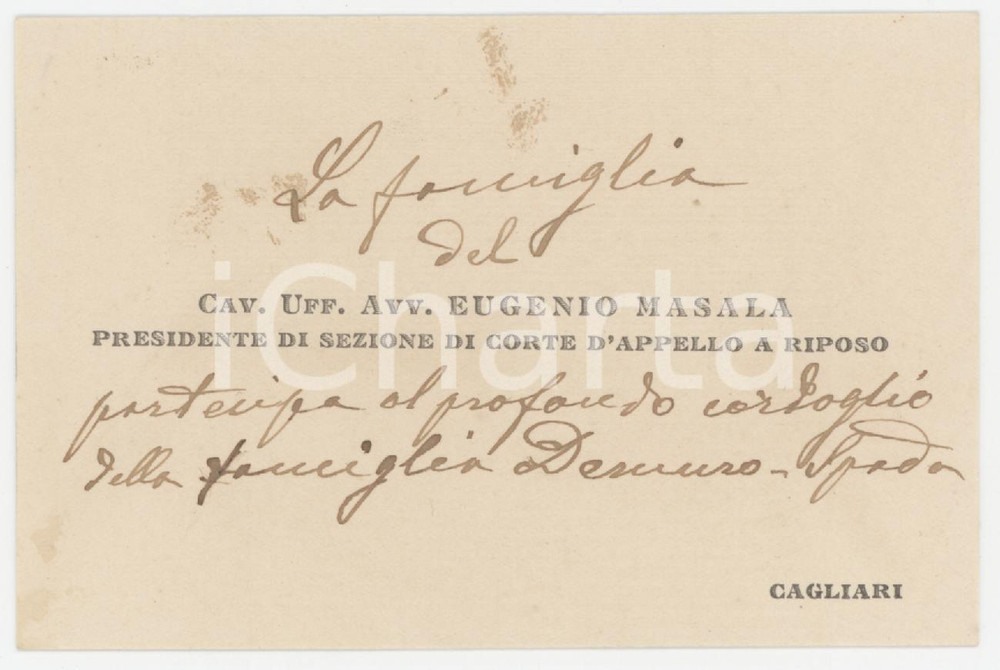 La famiglia
del
CAV. UFF. AVV. EUGENIO MASALA
PRESIDENTE DI SEZIONE DI CORTE D'APPELLO A RIPOSO
partecipa al profondo cordoglio
della famiglia Demuro-Spada
CAGLIARI
iCharta